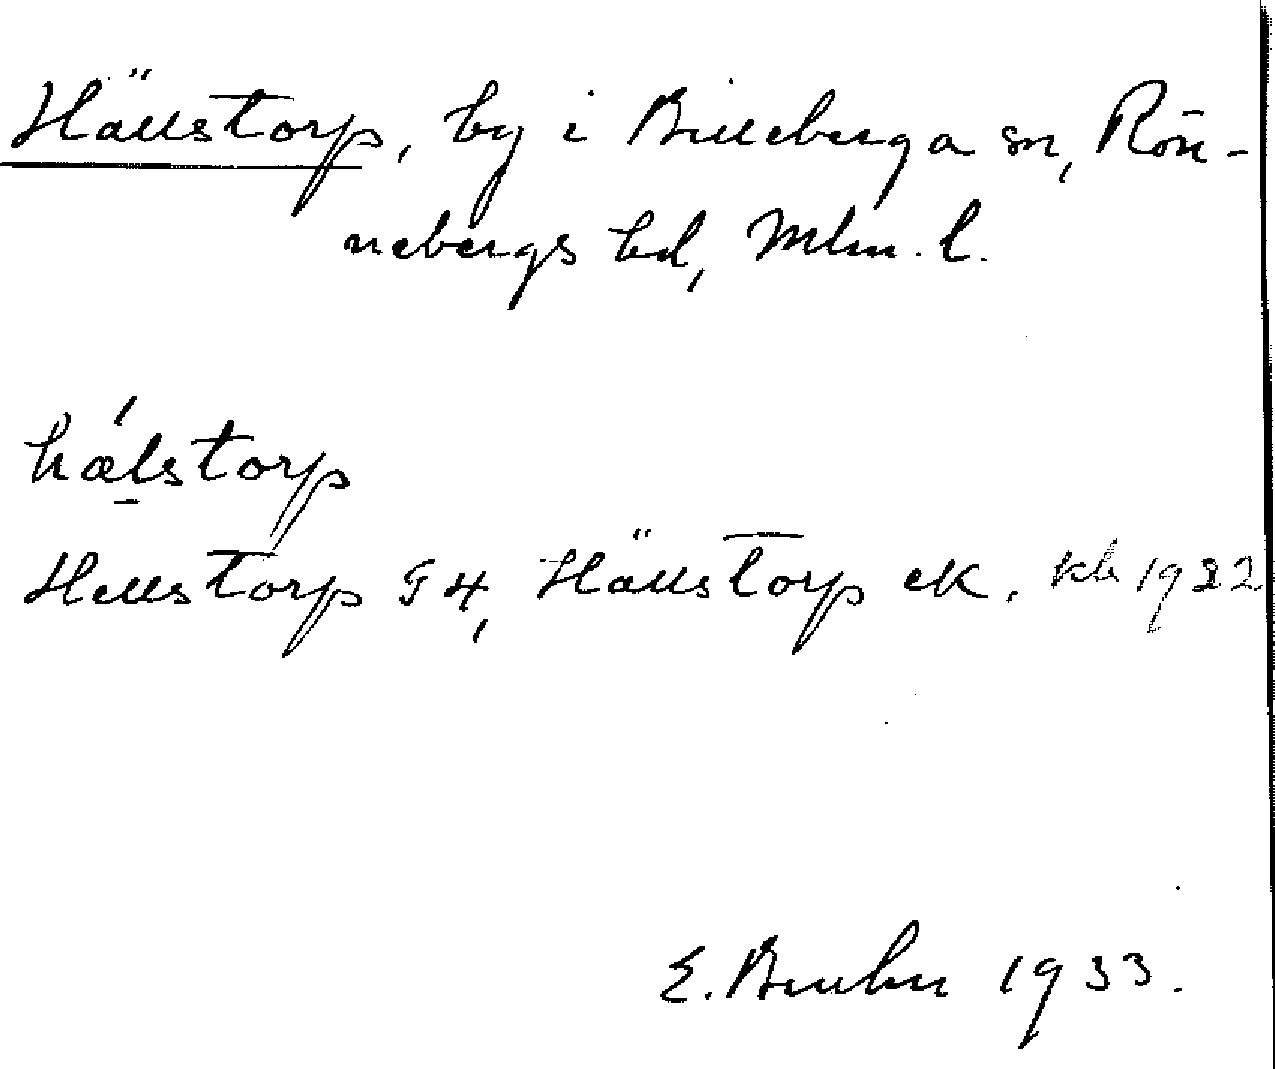 Hällstorp, by i Billeberga sn, Rön-
nebergs hd, Mlm. l.
hǽl̠storp
Hellstorp GK, Hällstorp eK. kb 1922
E. Bruhn 1933.